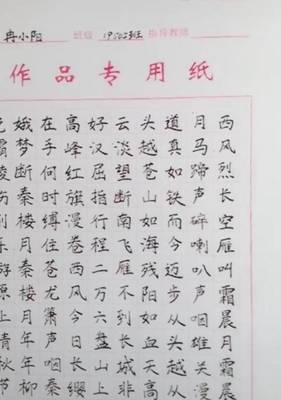 冉小阳 班级 19502班 指导教师
作品专用纸
西风烈长空雁叫霜晨月霜晨
月马蹄声碎喇叭声咽雄关漫
道真如铁而今迈步从头越从
头越苍山如海残阳如血天高
云淡望断南飞雁不到长城非
好汉屈指行程二万六盘山上
高峰红旗漫卷西风今日长缨
在手何时缚住苍龙箫声咽秦
娥梦断秦楼月秦楼月年年柳
色灞陵伤别乐游原上清秋节